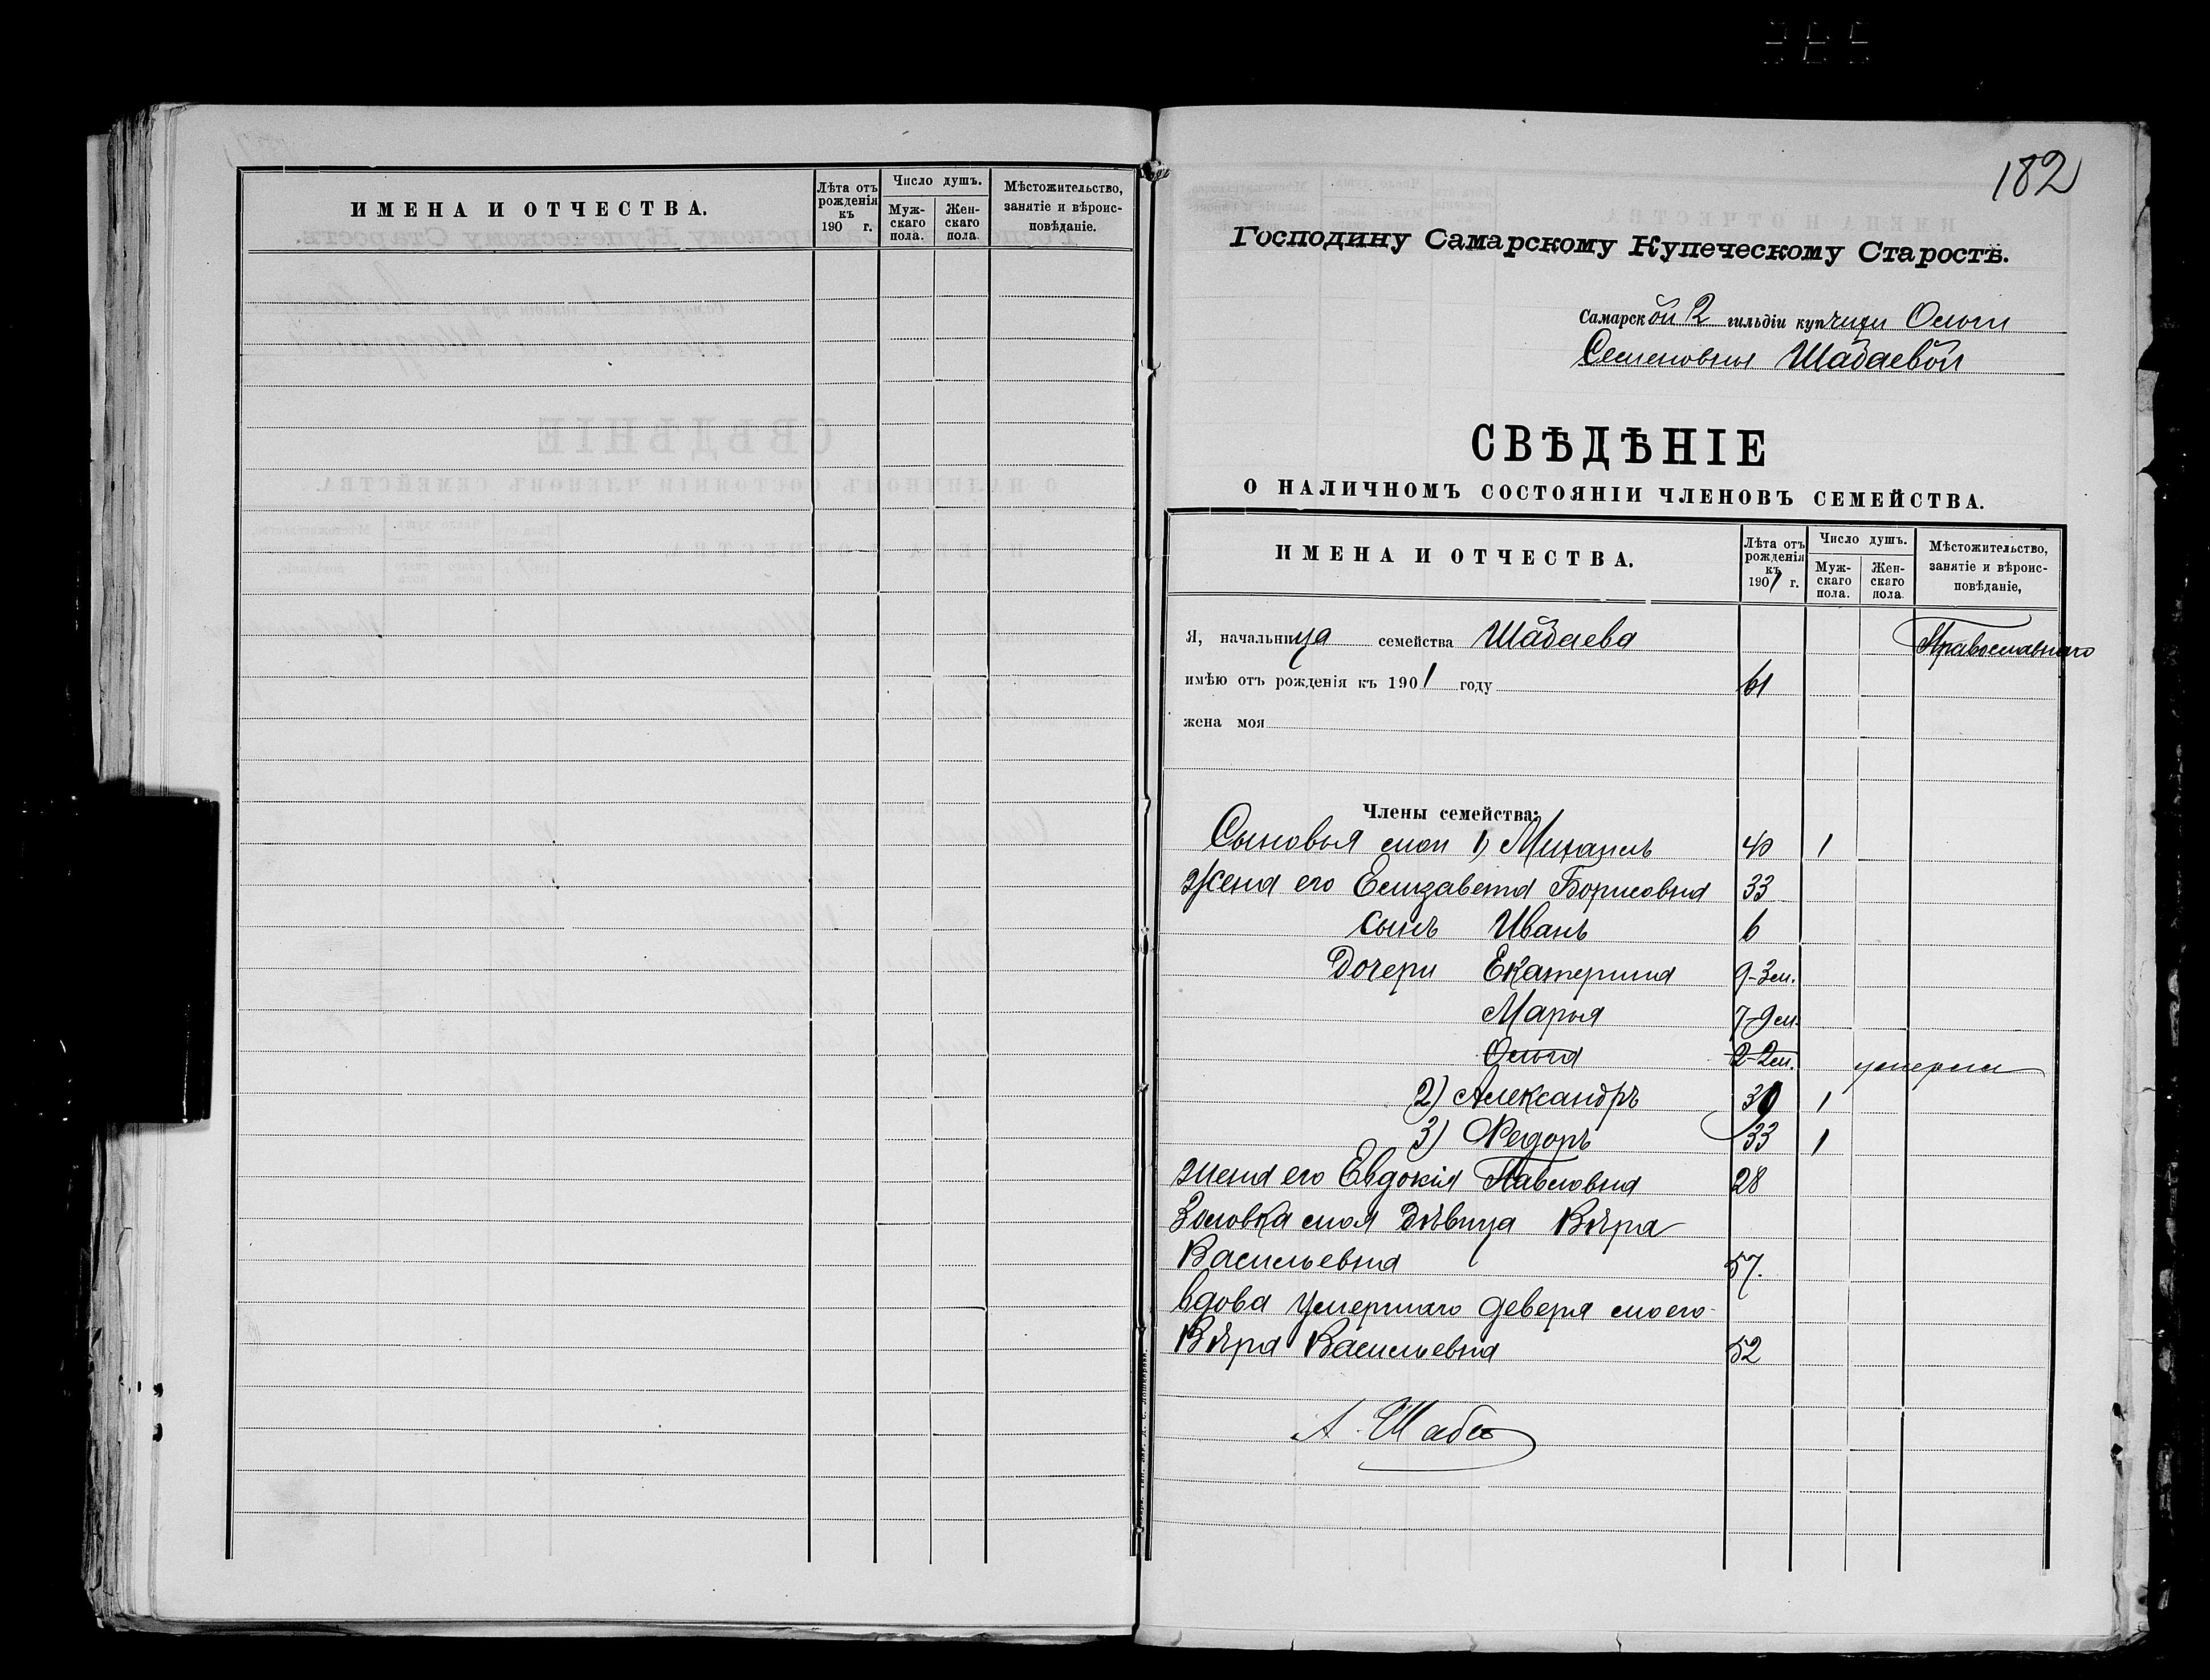 ИМЕНА И ОТЧЕСТВА.
Лѣта отъ рожденія къ 190 г.
Число душъ.
Муж-скаго пола.
Жен-скаго пола.
Мѣстожительство, занятіе и вѣроис-повѣданіе.
182
Господину Самарскому Купеческому Старостѣ.
Самарской 2 гильдіи купчихи Ольги
Семеновны Шабаевой
СВѢДѢНІЕ
О НАЛИЧНОМЪ СОСТОЯНІИ ЧЛЕНОВЪ СЕМЕЙСТВА.
ИМЕНА И ОТЧЕСТВА.
Лѣта отъ рожденія къ 1901 г.
Число душъ.
Муж-скаго пола.
Жен-скаго пола.
Мѣстожительство, занятіе и вѣроис-повѣданіе,
Я, начальница семейства Шабаева Православнаго
имѣю отъ рожденія къ 1901 году 61
жена моя
Члены семейства:
Сыновья мои 1) Михаилъ 40 1
Жена его Елизавета Борисовна 33
сынъ Иванъ 6
Дочери Екатерина 9-3 м.
Марья 7-9 м.
Ольга 2-2 м. умерла
2) Александръ 39 1
3) Федоръ 33 1
жена его Евдокія Павловна 28
Золовка моя дѣвица Вѣра
Васильевна 57.
вдова умершаго деверя моего
Вѣра Васильевна 52
А. Шабаев